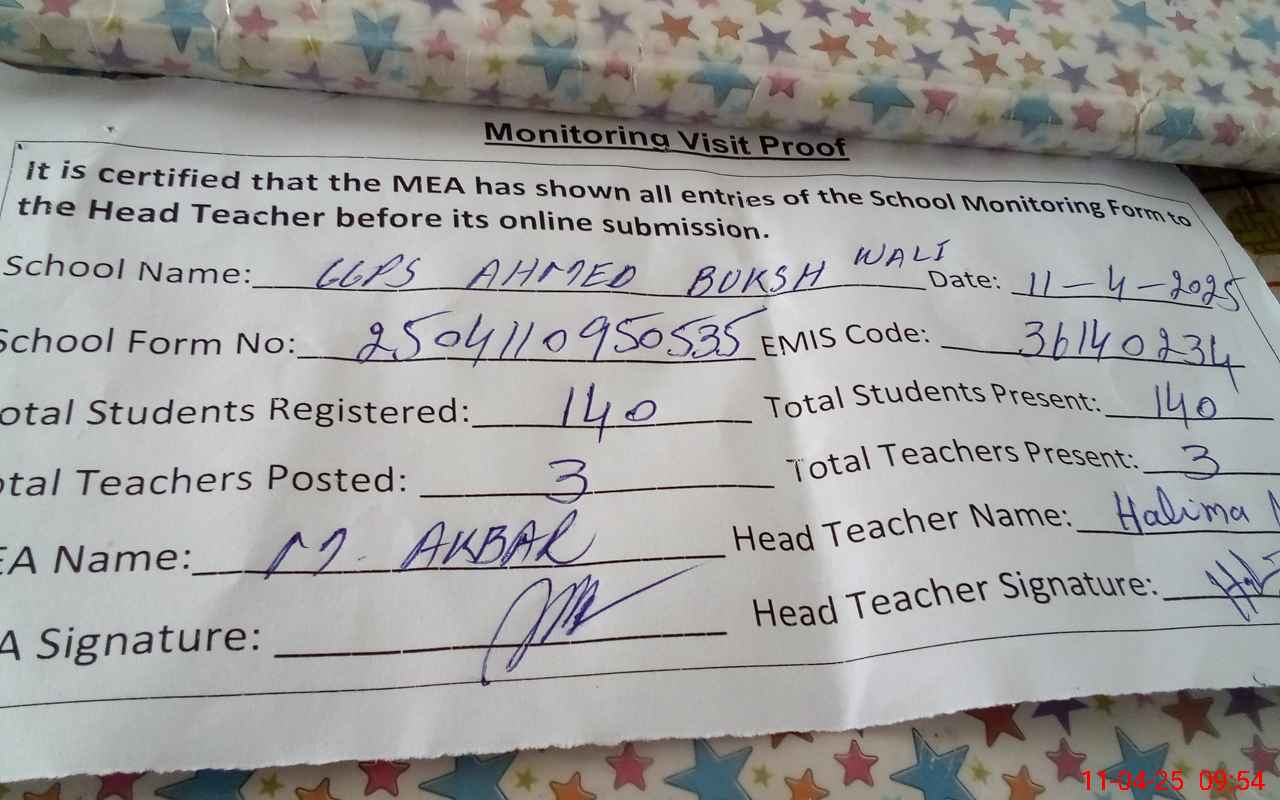 Monitoring Visit Proof
It is certified that the MEA has shown all entries of the School Monitoring Form to
the Head Teacher before its online submission.
School Name: GGPS AHMED BUKSH WALI Date: 11-4-2025
School Form No: 2504110950535 EMIS Code: 36140234
otal Students Registered: 140 Total Students Present: 140
otal Teachers Posted: 3 Total Teachers Present: 3
EA Name: M. AKBAR Head Teacher Name: Halima
A Signature: Head Teacher Signature:
11-04-25 09:54